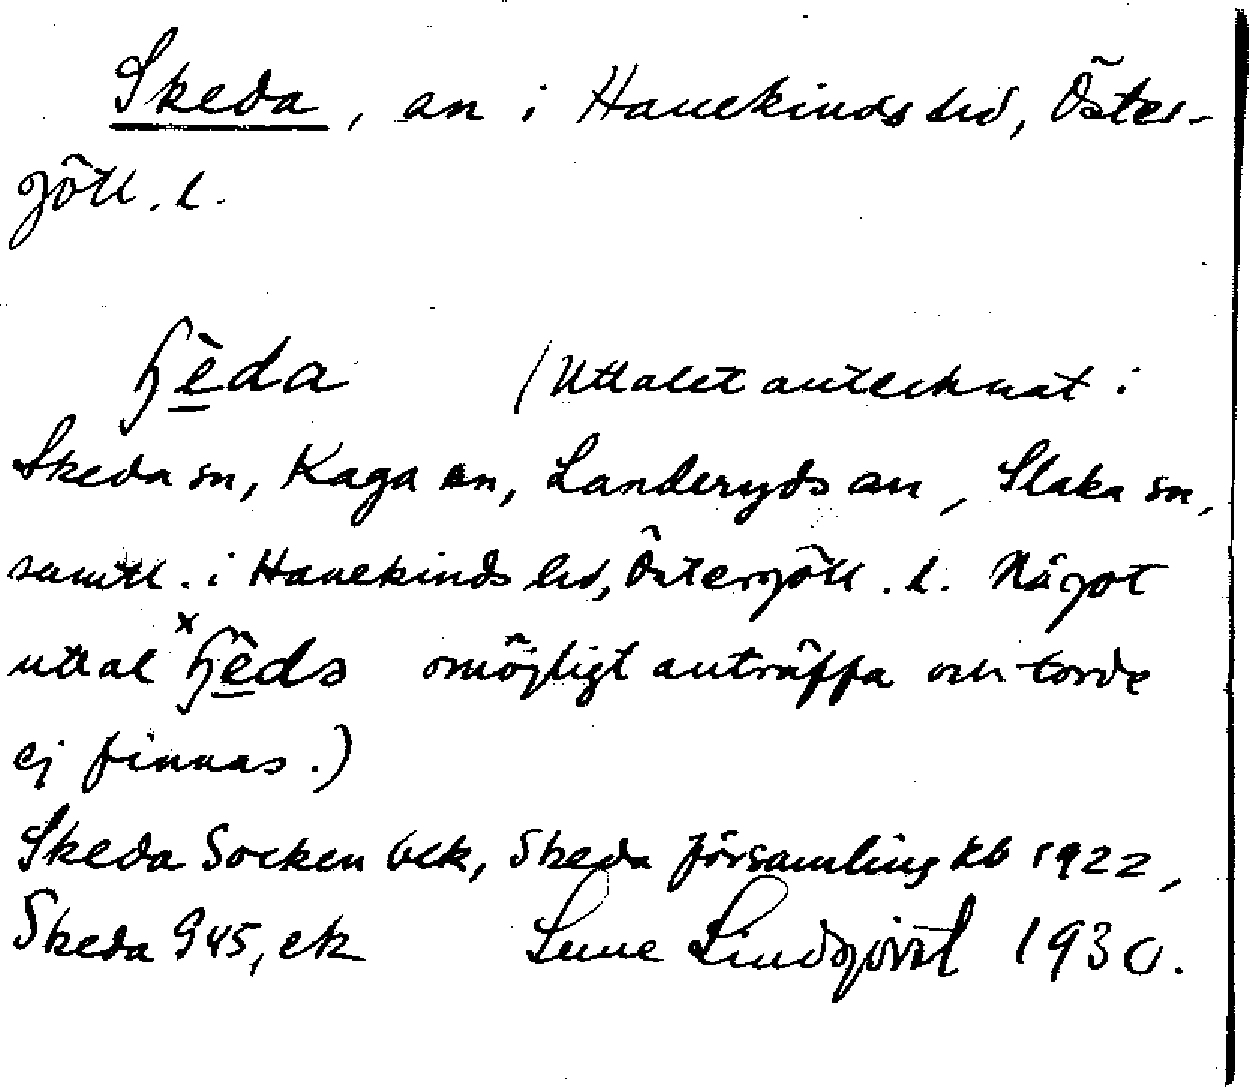 Skeda, sn i Hanekinds hd, Öster-
götl. l.
ɧèda (Uttalet antecknat i
Skeda sn, Kaga sn, Landeryds sn, Slaka sn,
samtl. i Hanekinds hd, Östergötl. l. Något
uttal ˣɧèds omöjligt anträffa och torde
ej finnas.)
Skeda Socken öek, Skeda församling kb 1922,
Skeda G45, ek Sune Lindqvist 1930.